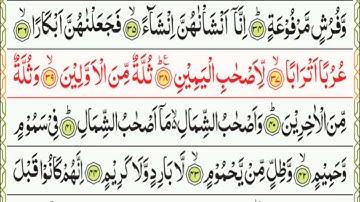 وَّفُرُشٍ مَّرْفُوْعَةٍ ﴿۳۴﴾ اِنَّاۤ اَنْشَاْنٰهُنَّ اِنْشَآءً ﴿۳۵﴾ فَجَعَلْنٰهُنَّ اَبْكَارًا ﴿۳۶﴾
عُرُبًا اَتْرَابًا ﴿۳۷﴾ لِّاَصْحٰبِ الْيَمِيْنِ ﴿۳۸﴾ ثُلَّةٌ مِّنَ الْاَوَّلِيْنَ ﴿۳۹﴾ وَثُلَّةٌ
مِّنَ الْاٰخِرِيْنَ ﴿۴۰﴾ وَاَصْحٰبُ الشِّمَالِ مَاۤ اَصْحٰبُ الشِّمَالِ ﴿۴۱﴾ فِيْ سَمُوْمٍ
وَّحَمِيْمٍ ﴿۴۲﴾ وَّظِلٍّ مِّنْ يَّحْمُوْمٍ ﴿۴۳﴾ لَّا بَارِدٍ وَّلَا كَرِيْمٍ ﴿۴۴﴾ اِنَّهُمْ كَانُوْا قَبْلَ